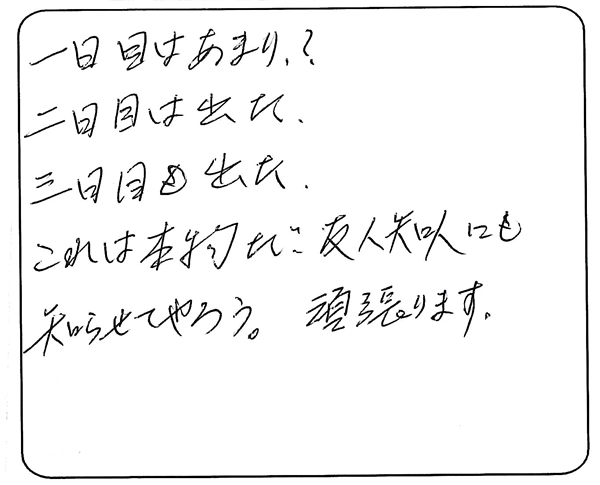 一日目はあまり、?
二日目は出た、
三日目も出た、
これは本物だ: 友人知人にも
知らせてやろう。 頑張ります、